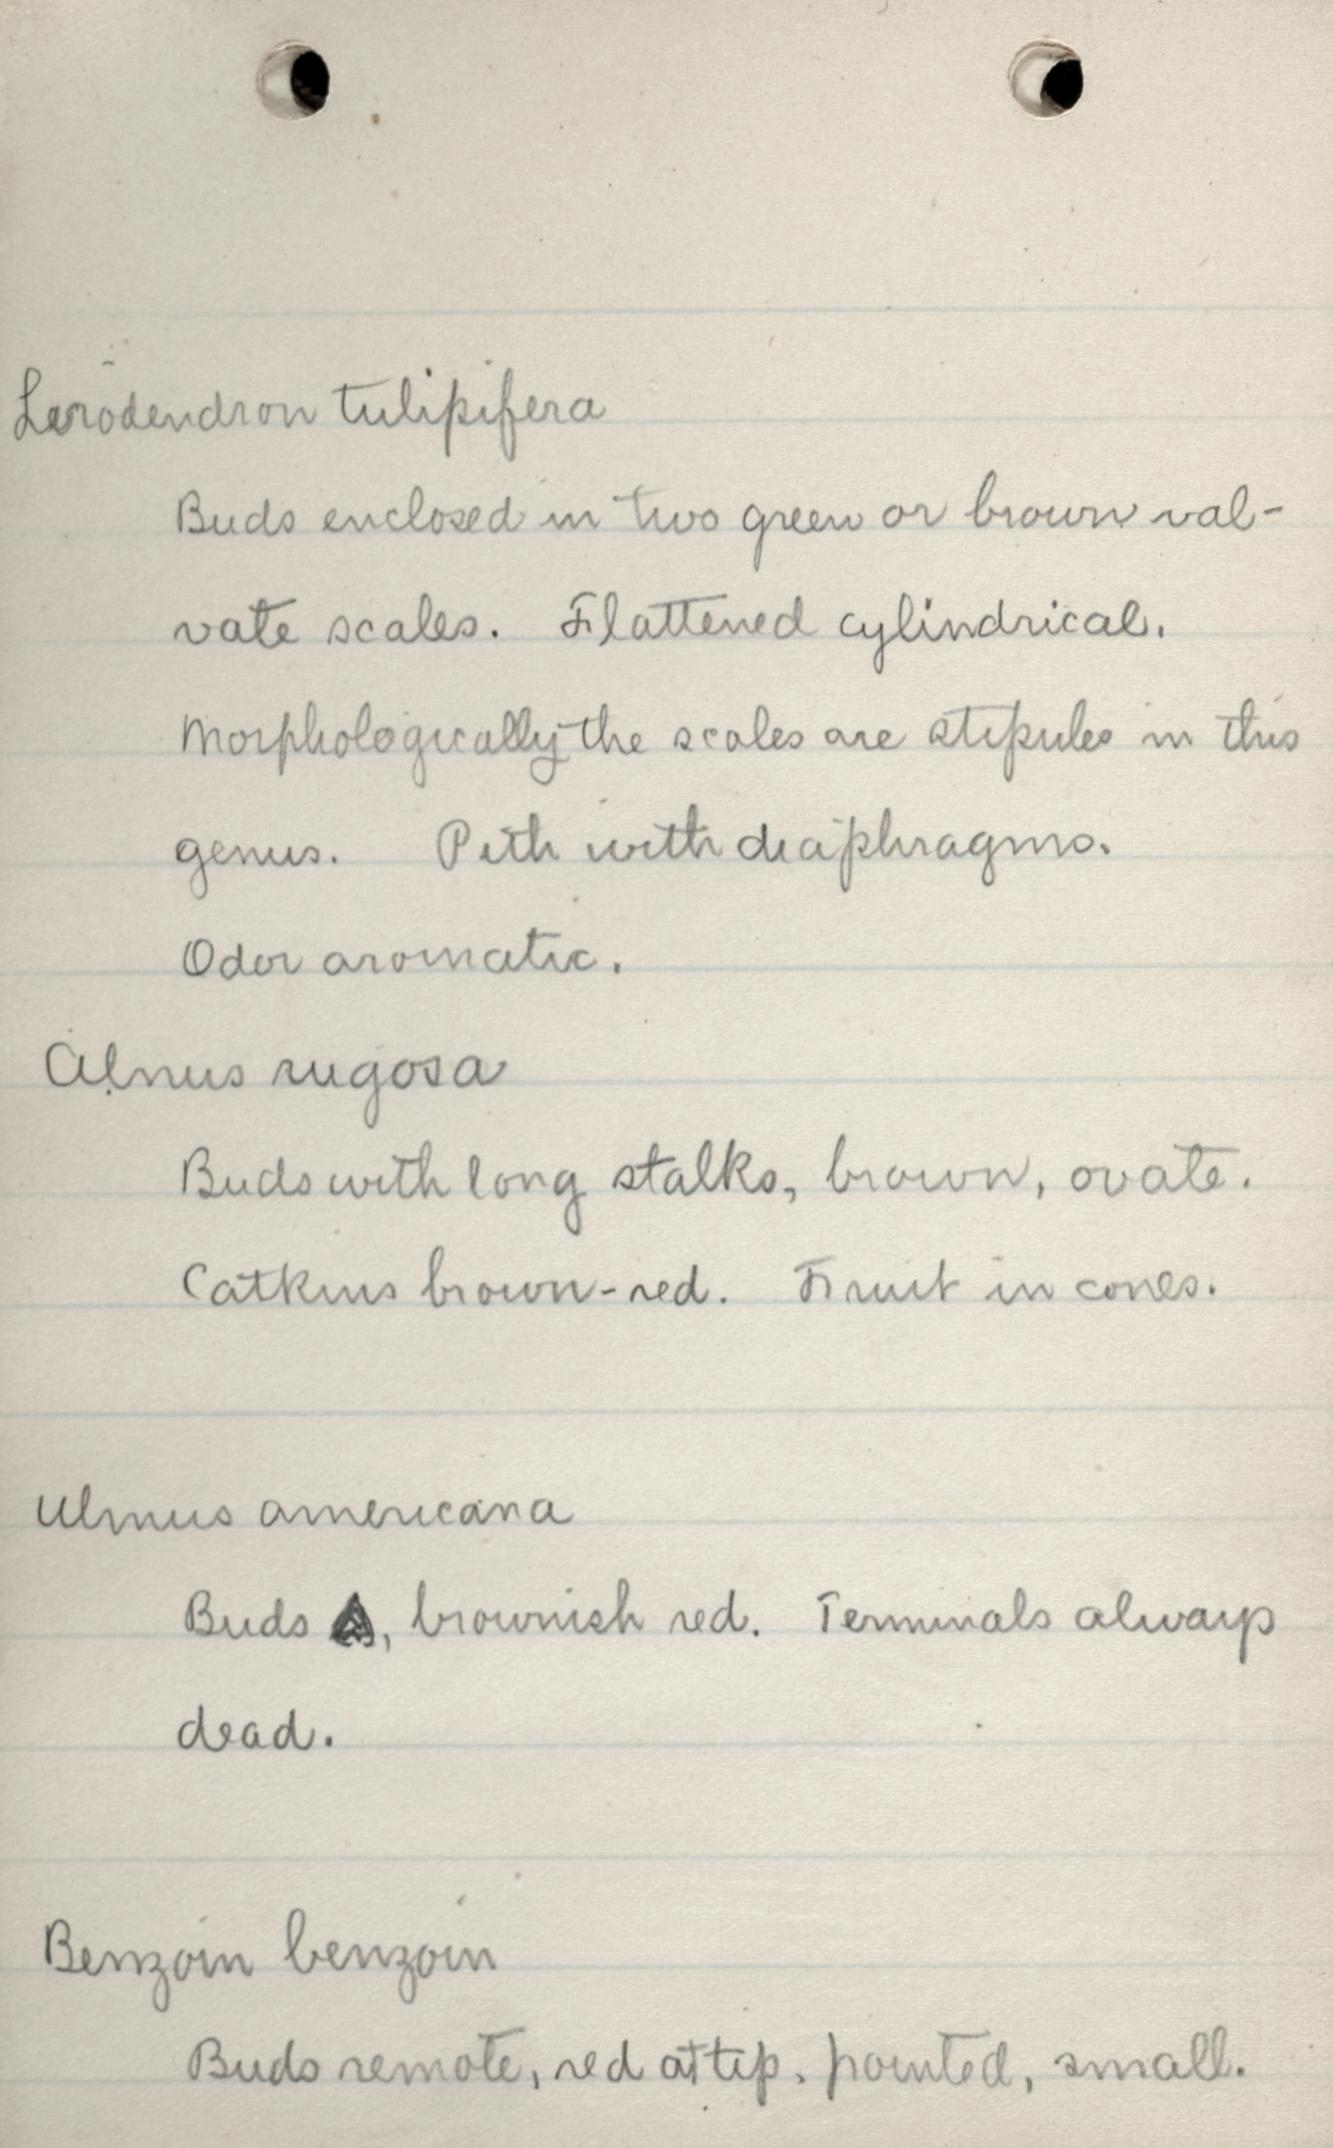 Lirodendron tulipifera
Buds enclosed in two green or brown val-
vate scales. Flattened cylindrical.
Morphologically the scales are stipules in this
genus. Pith with diaphragms.
Odor aromatic.
Alnus rugosa
Buds with long stalks, brown, ovate.
Catkins brown-red. Fruit in cones.
Ulmus americana
Buds , brownish red. Terminals always
dead.
Benzoin benzoin
Buds remote, red at tip. pointed, small.